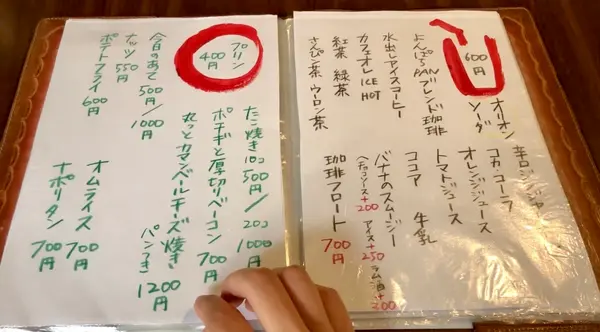 600円
オリオンソーダ
よんぱちPANブレンド珈琲
水出しアイスコーヒー
カフェオレ ICE HOT
紅茶 緑茶
さんぴん茶 ウーロン茶
辛口ジンジャー
コカ・コーラ
オレンジジュース
トマトジュース
ココア 牛乳
バナナのスムージー
チョコソース+200 アイス+250 ラム酒+200
珈琲フロート 700円
プリン 400円
今日のあて 500円/1000円
ナッツ 550円
ポテトフライ 600円
たこ焼き10コ500円/20コ1000円
ポチギと厚切りベーコン 700円
丸っとカマンベールチーズ焼き パンつき 1200円
オムライス 700円
ナポリタン 700円